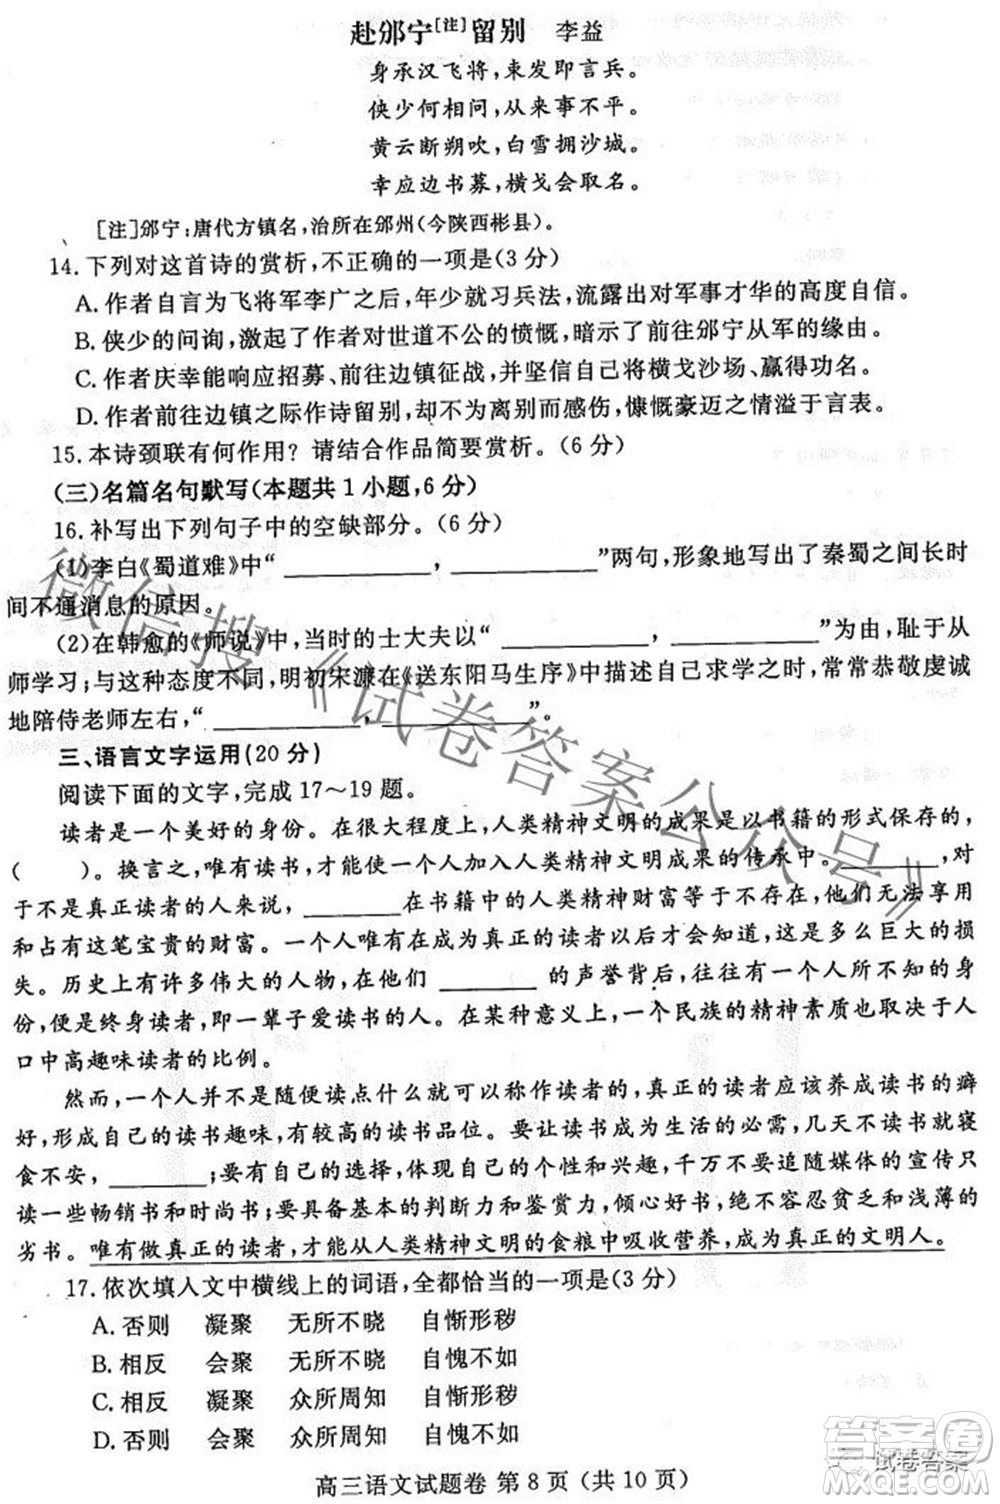 赴邠宁[注]留别 李益
身承汉飞将,束发即言兵。
侠少何相问,从来事不平。
黄云断朔吹,白雪拥沙城。
幸应边书募,横戈会取名。
[注]邠宁:唐代方镇名,治所在邠州(今陕西彬县)。
14.下列对这首诗的赏析,不正确的一项是(3分)
A.作者自言为飞将军李广之后,年少就习兵法,流露出对军事才华的高度自信。
B.侠少的问询,激起了作者对世道不公的愤慨,暗示了前往邠宁从军的缘由。
C.作者庆幸能响应招募、前往边镇征战,坚信自己将横戈沙场、赢得功名。
D.作者前往边镇之际作诗留别,却不为离别而感伤,慷慨豪迈之情溢于言表。
15.本诗颈联有何作用?请结合作品简要赏析。(6分)
(三)名篇名句默写(本题共1小题,6分)
16.补写出下列句子中的空缺部分。(6分)
(1)李白《蜀道难》中“__________,__________”两句,形象地写出了秦蜀之间长时
间不通消息的原因。
(2)在韩愈的《师说》中,当时的士大夫以“__________,__________”为由,耻于从
师学习;与这种态度不同,明初宋濂在《送东阳马生序》中描述自己求学之时,常常恭敬虔诚
地陪侍老师左右,“__________,__________”。
三、语言文字运用(20分)
阅读下面的文字,完成17~19题。
读者是一个美好的身份。在很大程度上,人类精神文明的成果是以书籍的形式保存的,
( )。换言之,唯有读书,才能使一个人加入人类精神文明成果的传承中。______,对
于不是真正读者的人来说,______在书籍中的人类精神财富等于不存在,他们无法享用
和占有这笔宝贵的财富。一个人唯有在成为真正的读者以后才会知道,这是多么巨大的损
失。历史上有许多伟大的人物,在他们______的声誉背后,往往有一个人所不知的身
份,便是终身读者,即一辈子爱读书的人。在某种意义上,一个民族的精神素质取决于人
口中高趣味读者的比例。
然而,并非随便读点什么就可以称作读者的。真正的读者应该养成读书的癖
好,形成自己的读书趣味,有较高的读书品位。要让读书成为生活的必需,几日不读就寝
食不安,______;要有自己的选择,体现自己的个性和兴趣,千万不要追随媒体的宣传只
读一些畅销书和时尚书;要具备基本的判断力和鉴赏力,倾心好书,本能地不能容忍贫乏和浅薄的
劣书。唯有做真正的读者,才能从人类精神文明的食粮中吸收营养,成为真正的文明人。
17.依次填入文中横线上的词语,全都恰当的一项是(3分)
A.否则 凝聚 无所不晓 自惭形秽
B.相反 会聚 无所不晓 自愧不如
C.相反 凝聚 众所周知 自惭形秽
D.否则 会聚 众所周知 自愧不如
高三语文试题卷 第8页(共10页)
微信搜《试卷答案公众号》
答案圈
试卷答案
MXQE.COM